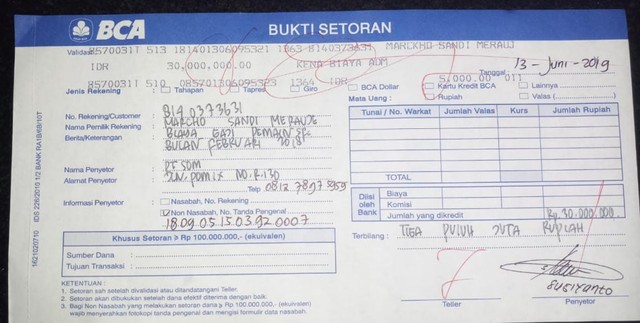 BCA
BUKTI SETORAN
Validasi
85700311 513 181401306095321 1363 8140373631 MARCKHO SANDI MERAUJ
IDR 30,000,000.00 KENA BIAYA ADM
Tanggal 13 - Juni - 2019
85700311 510 085701306095323 1364 IDR 5,000.00 011
Jenis Rekening : Tahapan Tapres Giro
BCA Dollar Kartu Kredit BCA Lainnya
Mata Uang : Rupiah Valas (
No. Rekening/Customer : 814 0373631
Nama Pemilik Rekening : MARCHO SANDI MERAUJE
Berita/Keterangan : BIAYA GAJI PEMAIN SFC
BULAN FEBRUARI 2018
Nama Penyetor : PT SOM
Alamat Penyetor : JLN. POM IX NO. R.130
Telp 0812 7897 5959
Informasi Penyetor : Nasabah, No. Rekening
Non Nasabah, No. Tanda Pengenal
1809 05 15 0392 0007
Khusus Setoran ≥ Rp 100.000.000,- (ekuivalen)
Sumber Dana :
Tujuan Transaksi :
Tunai / No. Warkat Jumlah Valas Kurs Jumlah Rupiah
TOTAL
Diisi oleh Bank
Biaya
Komisi
Jumlah yang dikredit Rp. 30.000.000.
Terbilang : TIGA PULUH JUTA RUPIAH
KETENTUAN :
1. Setoran sah setelah divalidasi atau ditandatangani Teller
2. Setoran akan dibukukan setelah dana efektif diterima dengan baik.
3. Bagi Non Nasabah yang melakukan setoran dana ≥ Rp 100.000.000,- (ekuivalen)
wajib menyerahkan fotokopi tanda pengenal dan mengisi formulir data nasabah.
SUGIYANTO
Teller
Penyetor